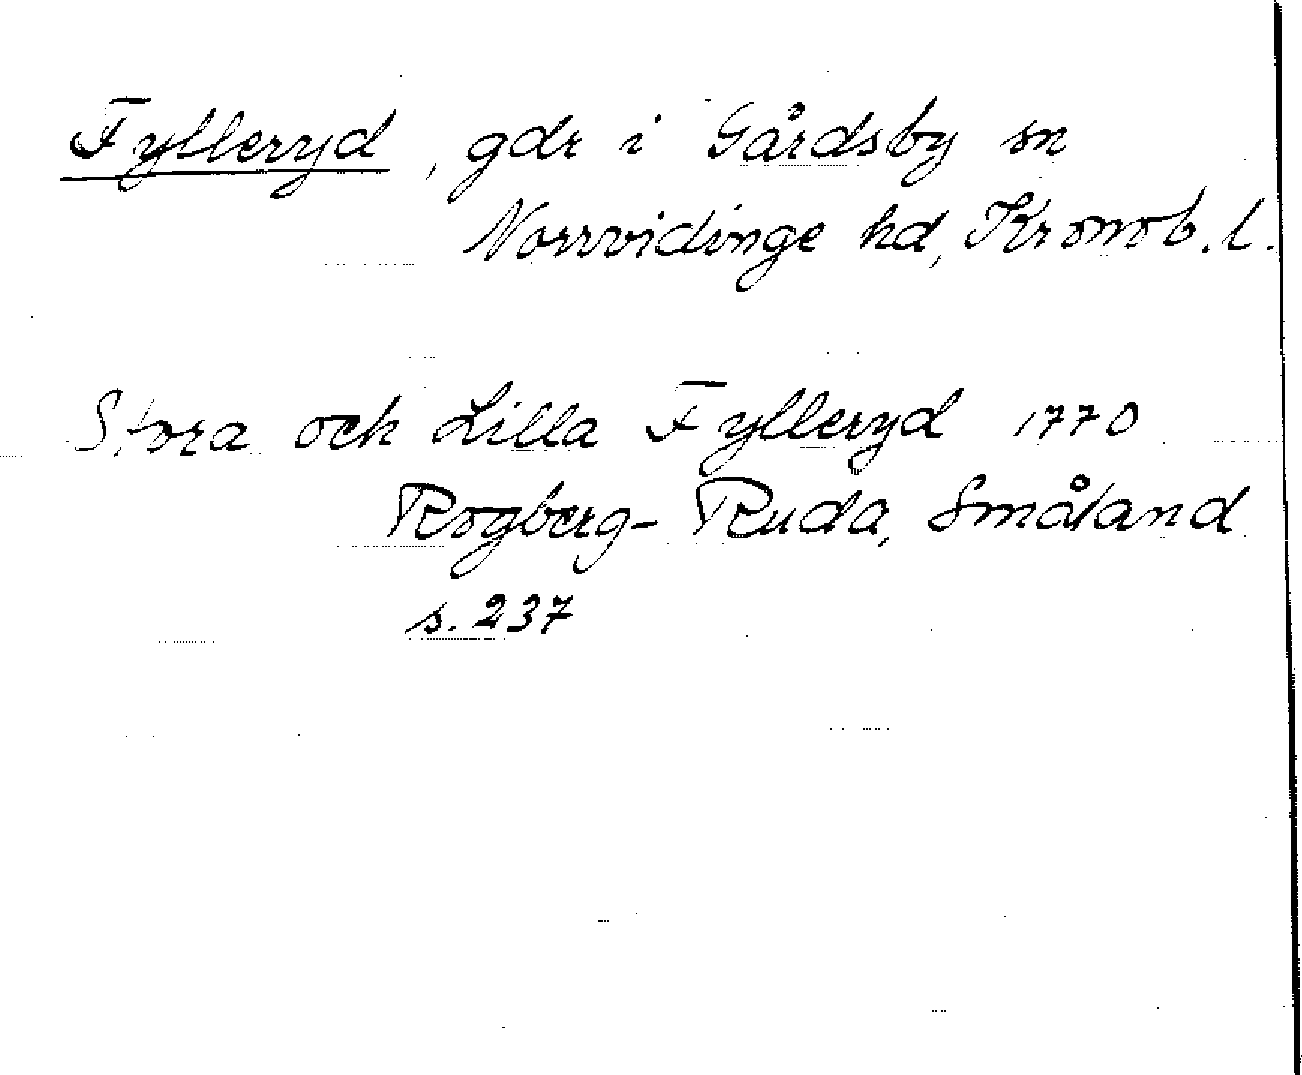 Fylleryd, gdr i Gårdsby sn
Norrvidinge hd, Kronob. l.
Stora och Lilla Fylleryd 1770
Rogberg-Ruda, Småland
s. 237